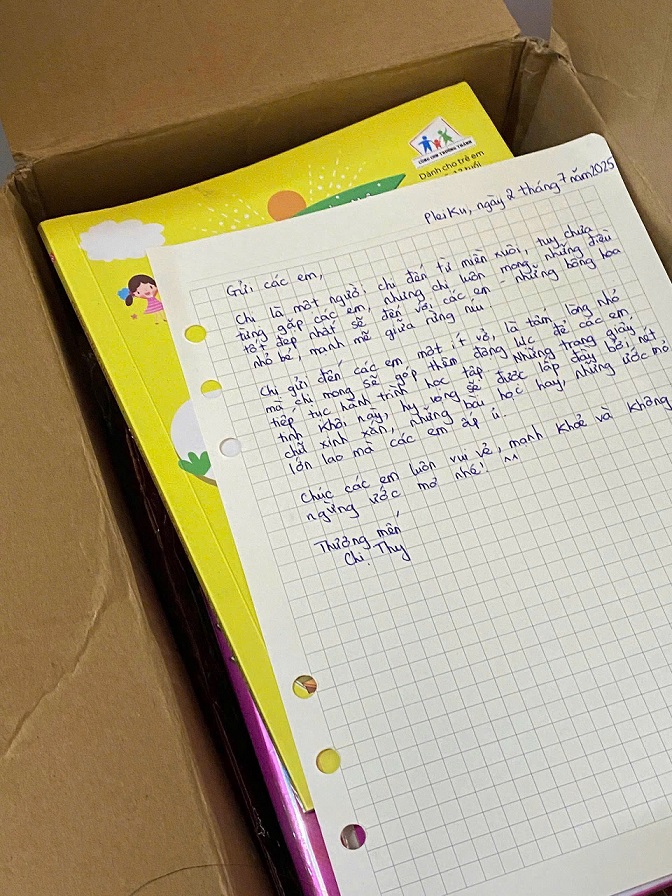 CÙNG CON TRƯỞNG THÀNH
Dành cho trẻ em
tuổi
Plei Ku, ngày 2 tháng 7 năm 2025
Gửi các em,
Chị là một người chị đến từ miền xuôi, tuy chưa
từng gặp các em, nhưng chị luôn mong những điều
tốt đẹp nhất sẽ đến với các em - những bông hoa
nhỏ bé, mạnh mẽ giữa rừng núi.
Chị gửi đến các em một ít vở, là tấm lòng nhỏ
mà chị mong sẽ góp thêm động lực để các em
tiếp tục hành trình học tập. Những trang giấy
tinh khôi này, hy vọng sẽ được lấp đầy bởi nét
chữ xinh xắn, những bài học hay, những ước mơ
lớn lao mà các em ấp ủ.
Chúc các em luôn vui vẻ, mạnh khoẻ và không
ngừng ước mơ nhé! ^^
Thương mến
Chị Thy